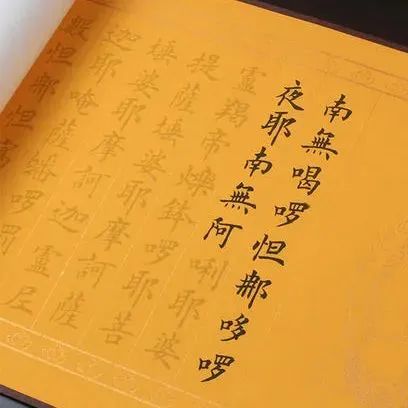 南無喝啰怛那哆啰
夜耶南無阿唎耶婆
盧羯帝爍鉢啰耶菩
提薩埵婆耶摩訶薩
埵婆耶摩訶迦盧尼
迦耶唵薩皤啰罰
怛那